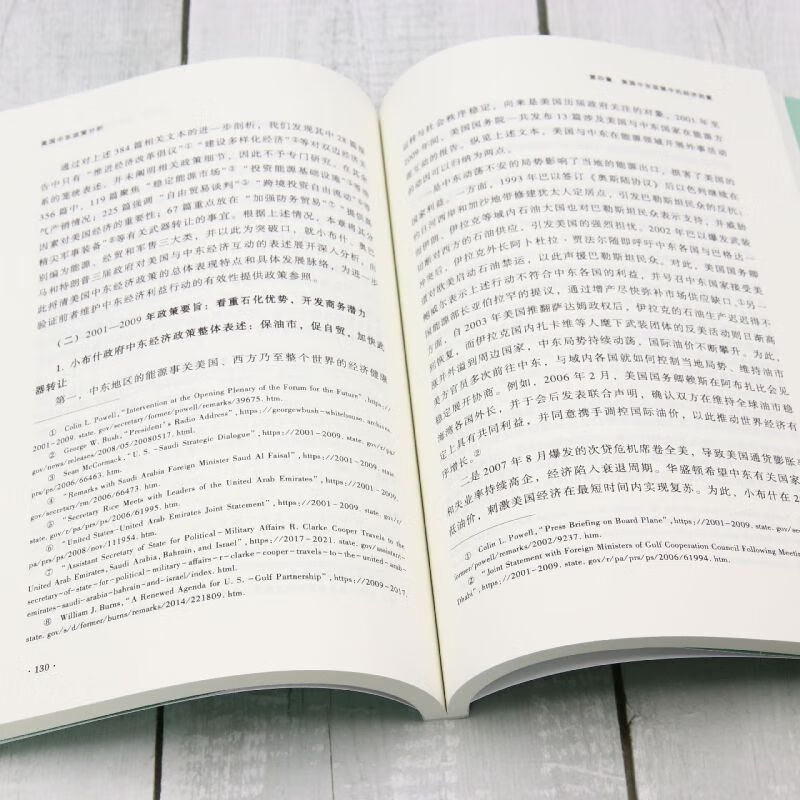 美国中东政策分析
通过对上述384篇相关文本的进一步剖析，我们发现其中28篇报
告中只有“推进经济改革倡议”①“建设多样化经济”②等对双边经济关
系的笼统表述，并未阐明相关政策细节，因此不予专门研究。在其余
356篇中，119篇聚焦“稳定能源市场”③“投资能源基础设施”④等油
气产销情况；225篇强调“自由贸易谈判”⑤“跨境投资自由流动”⑥等
因素对美国经济的重要性；67篇重点放在“加强防务贸易”⑦“提供高
精尖军事装备”⑧等有关武器转让的事宜。根据上述情况，本章将其分
别编为能源、经贸和军售三大类，并以此为突破口，就小布什、奥巴
马和特朗普三届政府对美国与中东经济互动的表述展开深入分析，由
此捋清美国中东经济政策的总体表现特点和具体发展脉络，为进一步
验证前者维护中东经济利益行动的有效性提供政策参照。
（二）2001—2009年政策要旨：看重石化优势，开发商务潜力
1. 小布什政府中东经济政策整体表述：保油市，促自贸，加快武
器转让
第一，中东地区的能源事关美国、西方乃至整个世界的经济健康
① Colin L. Powell, “Intervention at the Opening Plenary of the Forum for the Future”, https://
2001-2009. state. gov/secretary/former/powell/remarks/39675. htm.
② George W. Bush, “President's Radio Address”, https://georgewbush-whitehouse. archives.
gov/news/releases/2008/05/20080517. html.
③ Sean McCormack, “U. S. -Saudi Strategic Dialogue”, https://2001-2009. state. gov/r/pa/
prs/ps/2006/66463. htm.
④ “Remarks with Saudi Arabia Foreign Minister Saud Al Faisal”, https://2001-2009. state.
gov/secretary/rm/2006/66473. htm.
⑤ “Secretary Rice Meets with Leaders of the United Arab Emirates”, https://2001-2009.
state. gov/r/pa/prs/ps/2006/61995. htm.
⑥ “United States-United Arab Emirates Joint Statement”, https://2001-2009. state. gov/r/
pa/prs/ps/2008/nov/111954. htm.
⑦ “Assistant Secretary of State for Political-Military Affairs R. Clarke Cooper Travels to the
United Arab Emirates, Saudi Arabia, Bahrain, and Israel”, https://2017-2021. state. gov/assistant-
secretary-of-state-for-political-military-affairs-r-clarke-cooper-travels-to-the-united-arab-
emirates-saudi-arabia-bahrain-and-israel/index. html.
⑧ William J. Burns, “A Renewed Agenda for U. S. -Gulf Partnership”, https://2009-2017.
state. gov/s/d/former/burns/remarks/2014/221809. htm.
· 130 ·
第四章 美国中东政策中的经济因素
运转与社会秩序稳定，向来是美国历届政府关注的对象。2001年至
2009年间，美国国务院一共发布13篇涉及美国与中东国家在能源方
面互动的报告。纵览上述文本，美国与中东在能源领域开展外事活动
的动因可以归纳为两点。
一是中东动荡不安的局势影响了当地的能源出口，损害了美国的
国家利益。一方面，1993年巴以签订《奥斯陆协议》后以色列继续在
约旦河西岸和加沙地带修建犹太人定居点，引发巴勒斯坦民众的反抗，
而伊朗、伊拉克等域内石油大国也对巴勒斯坦民众表示支持，并威胁
切断对西方的石油供应，引发美国的强烈担忧。2002年巴以爆发武装
冲突后，伊拉克外长阿卜杜拉·贾法尔随即呼吁中东各国与巴格达一
道对欧美启动石油禁运，以此声援巴勒斯坦民众。对此，美国国务卿
鲍威尔表示上述行动不符合中东各国的利益，并号召中东国家接受美
国能源部长亚伯拉罕的提议，通过增产尽快弥补市场供应缺口。①另一
方面，自2003年美国推翻萨达姆政权后，伊拉克的石油生产迟迟得不
到恢复，而伊拉克国内扎卡维等人麾下武装团体的反美活动则日渐高
涨并外溢到周边国家，中东局势持续动荡，国际油价不断攀升。为此，
美方官员多次前往中东，与域内各国就如何控制当地局势、维持油市
稳定展开协商。例如，2006年2月，美国国务卿赖斯在阿布扎比会见
海湾各国外长，并于会后发表联合声明，确认双方在维持全球油市稳
定上具有共同利益，并同意携手调控国际油价，以此推动世界经济有
序增长。②
二是2007年8月爆发的次贷危机席卷全美，导致美国通货膨胀率
和失业率持续高企，经济陷入衰退周期。华盛顿希望中东有关国家
低油价，刺激美国经济在最短时间内实现复苏。为此，小布什在
① Colin L. Powell, “Press Briefing on Board Plane”, https://2001-2009. state. gov/sec
former/powell/remarks/2002/9237. htm.
② “Joint Statement with Foreign Ministers of Gulf Cooperation Council Following Meeting
Dhabi”, https://2001-2009. state. gov/r/pa/prs/ps/2006/61994. htm.